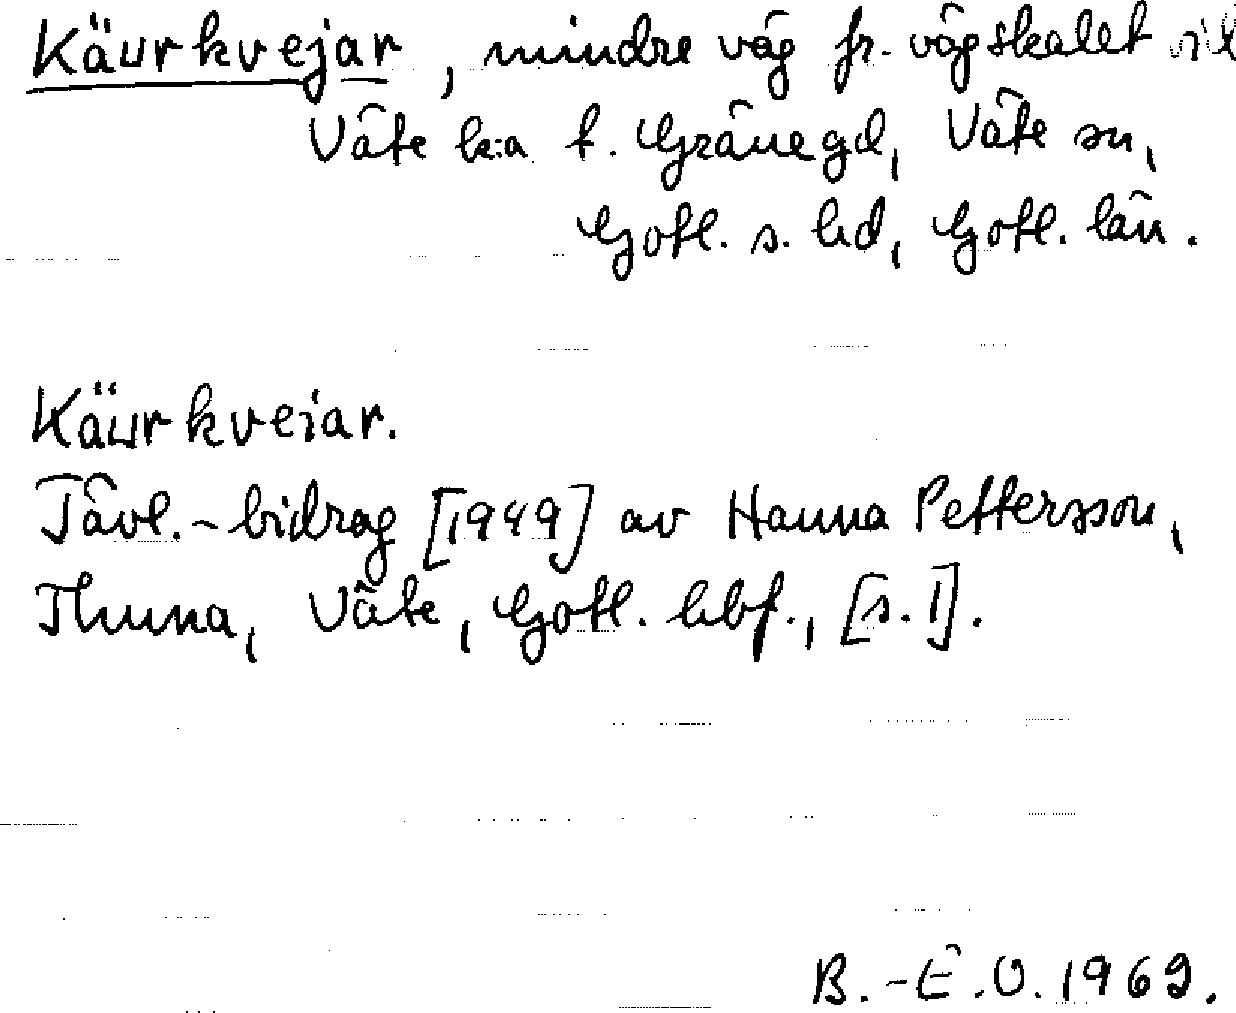 Käurkvejar, mindre väg fr. vägskälet vid
Väte k:a t. Gräne gd, Väte sn,
Gotl. s. hd, Gotl. län.
Käurkveiar.
Tävl.-bidrag [1949] av Hanna Pettersson,
Thuna, Väte, Gotl. hbf., [s. 1].
B.-E.O. 1969.